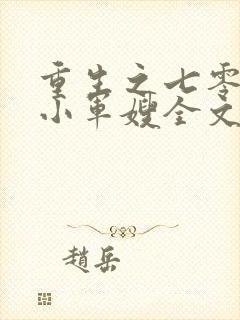 重生之七零
小军嫂全文
趙岳